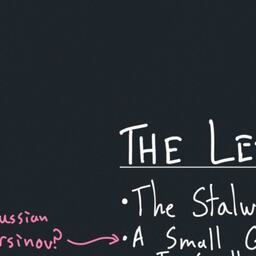 THE LE
• The Stalw
ussian
rsinov?
• A Small G